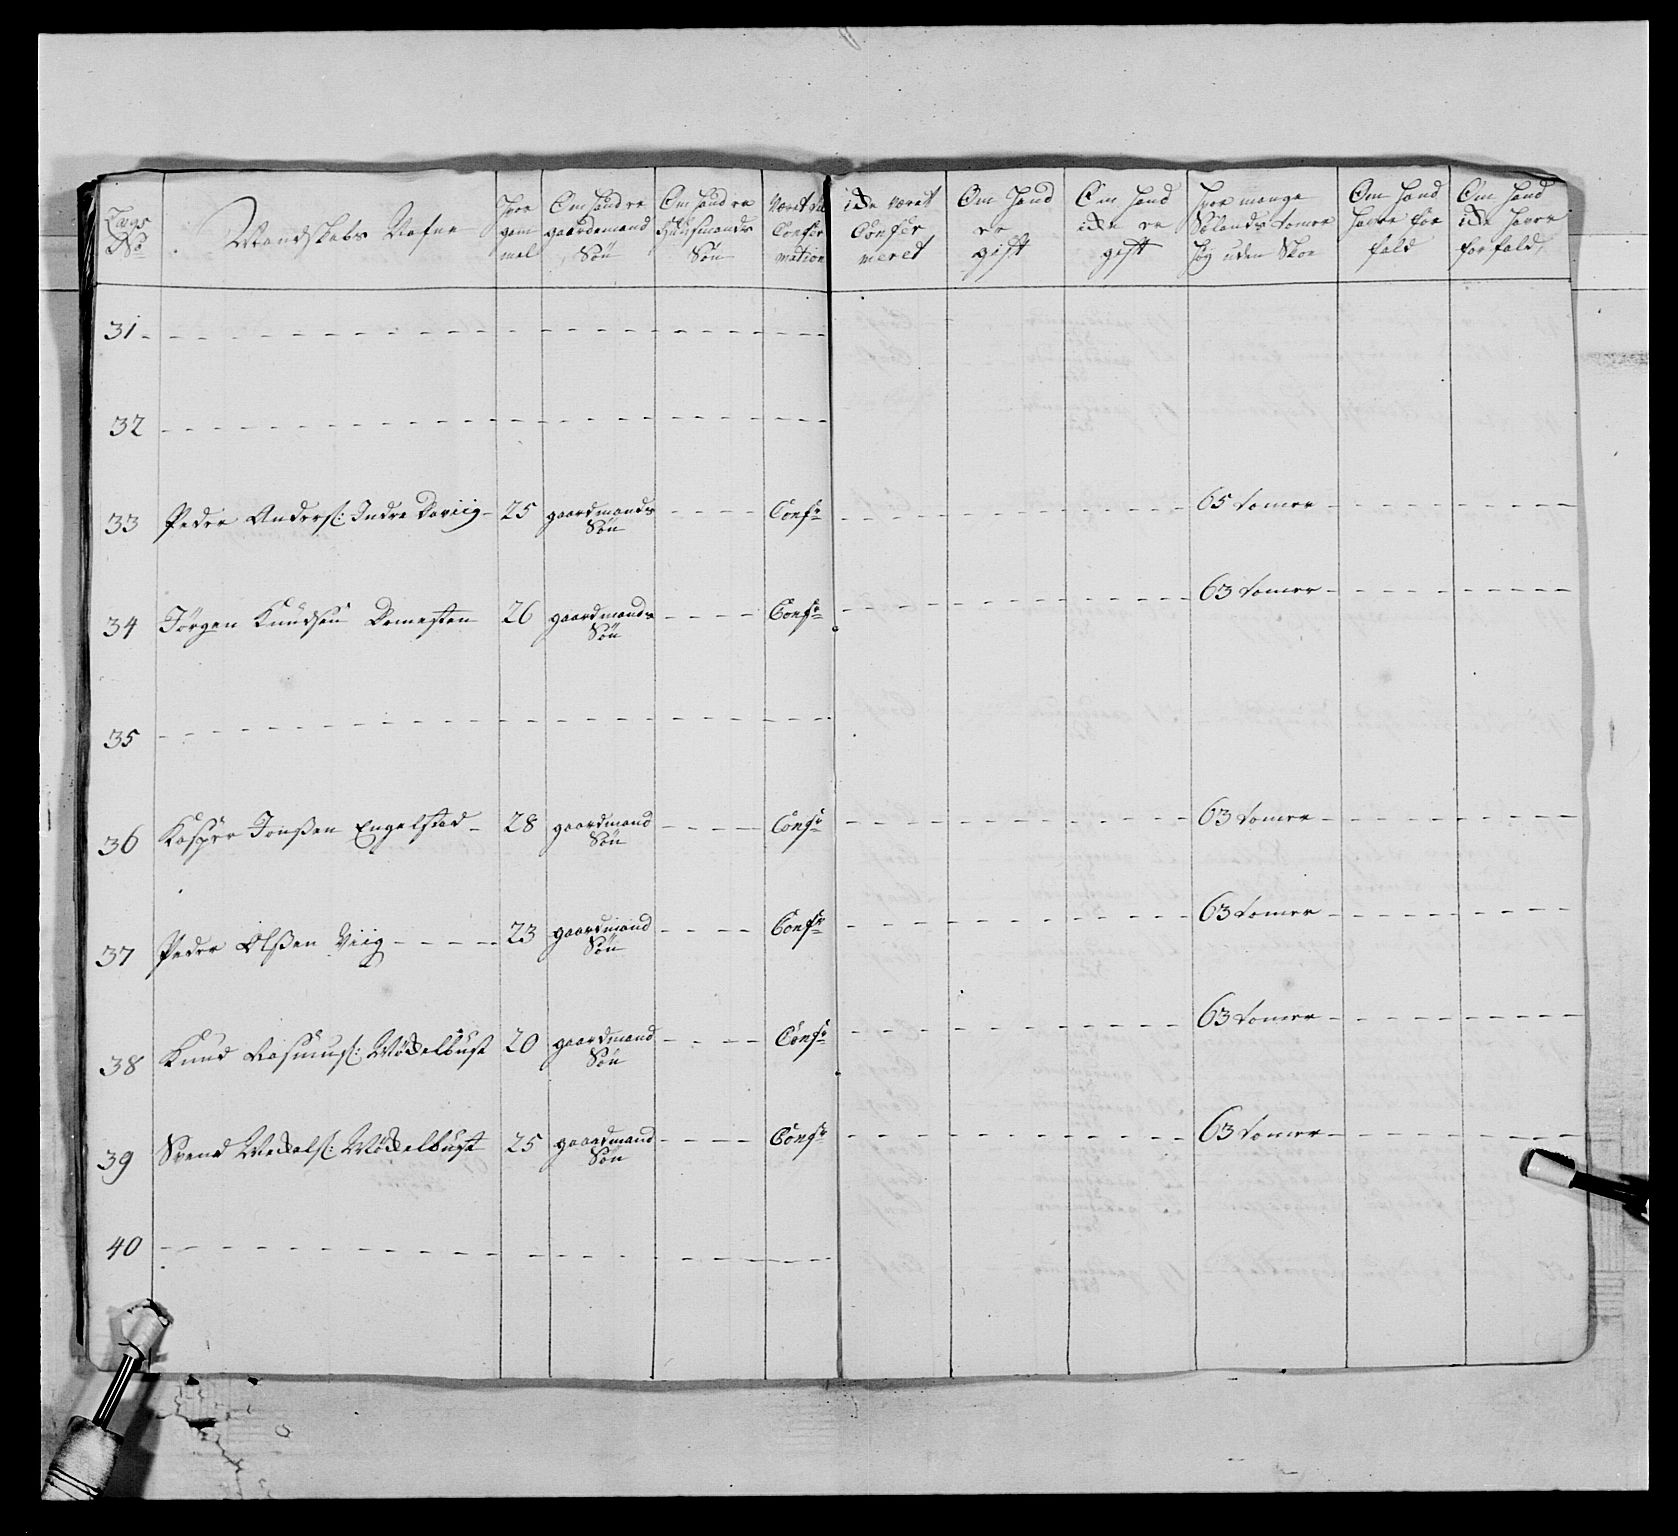 Lægs No | Mandskabs Nafne | Hvor gam mel | Om hand er gaardemand Søn | Om hand er Huusmands Søn | Været til Confir mation | icke været Confir meret | Om Hand er gift | Om hand icke er gift | Hvor mange Sølands tomer høy uden Skoe | Om hand haver for fald | Om hand icke haver forfald
31 - - - - - -
32 - - - - - -
33 Peder Anders: Indre Darviig - 25 gaardmands Søn - - - - Confr - - - - 65 tomer - - - -
34 Jørgen Knudsen Domesten 26 gaardmands Søn - - - - Confr - - - - 63 tomer - - - -
35 - - - - - -
36 Kasper Jonßen Engelstad - 28 gaardmand Søn - - - - Confr - - - - 63 tomer - - - -
37 Peder Olßen Viig - - - - 23 gaardmand Søn - - - - Confr - - - - 63 tomer - - - -
38 Knud Rasmus: Møckelbust 20 gaardmand Søn - - - - Confr - - - - 63 tomer - - - -
39 Svend Meckels: Møckelbust 25 gaardmand Søn - - - - Confr - - - - 63 tomer - - - -
40 - - - - - -